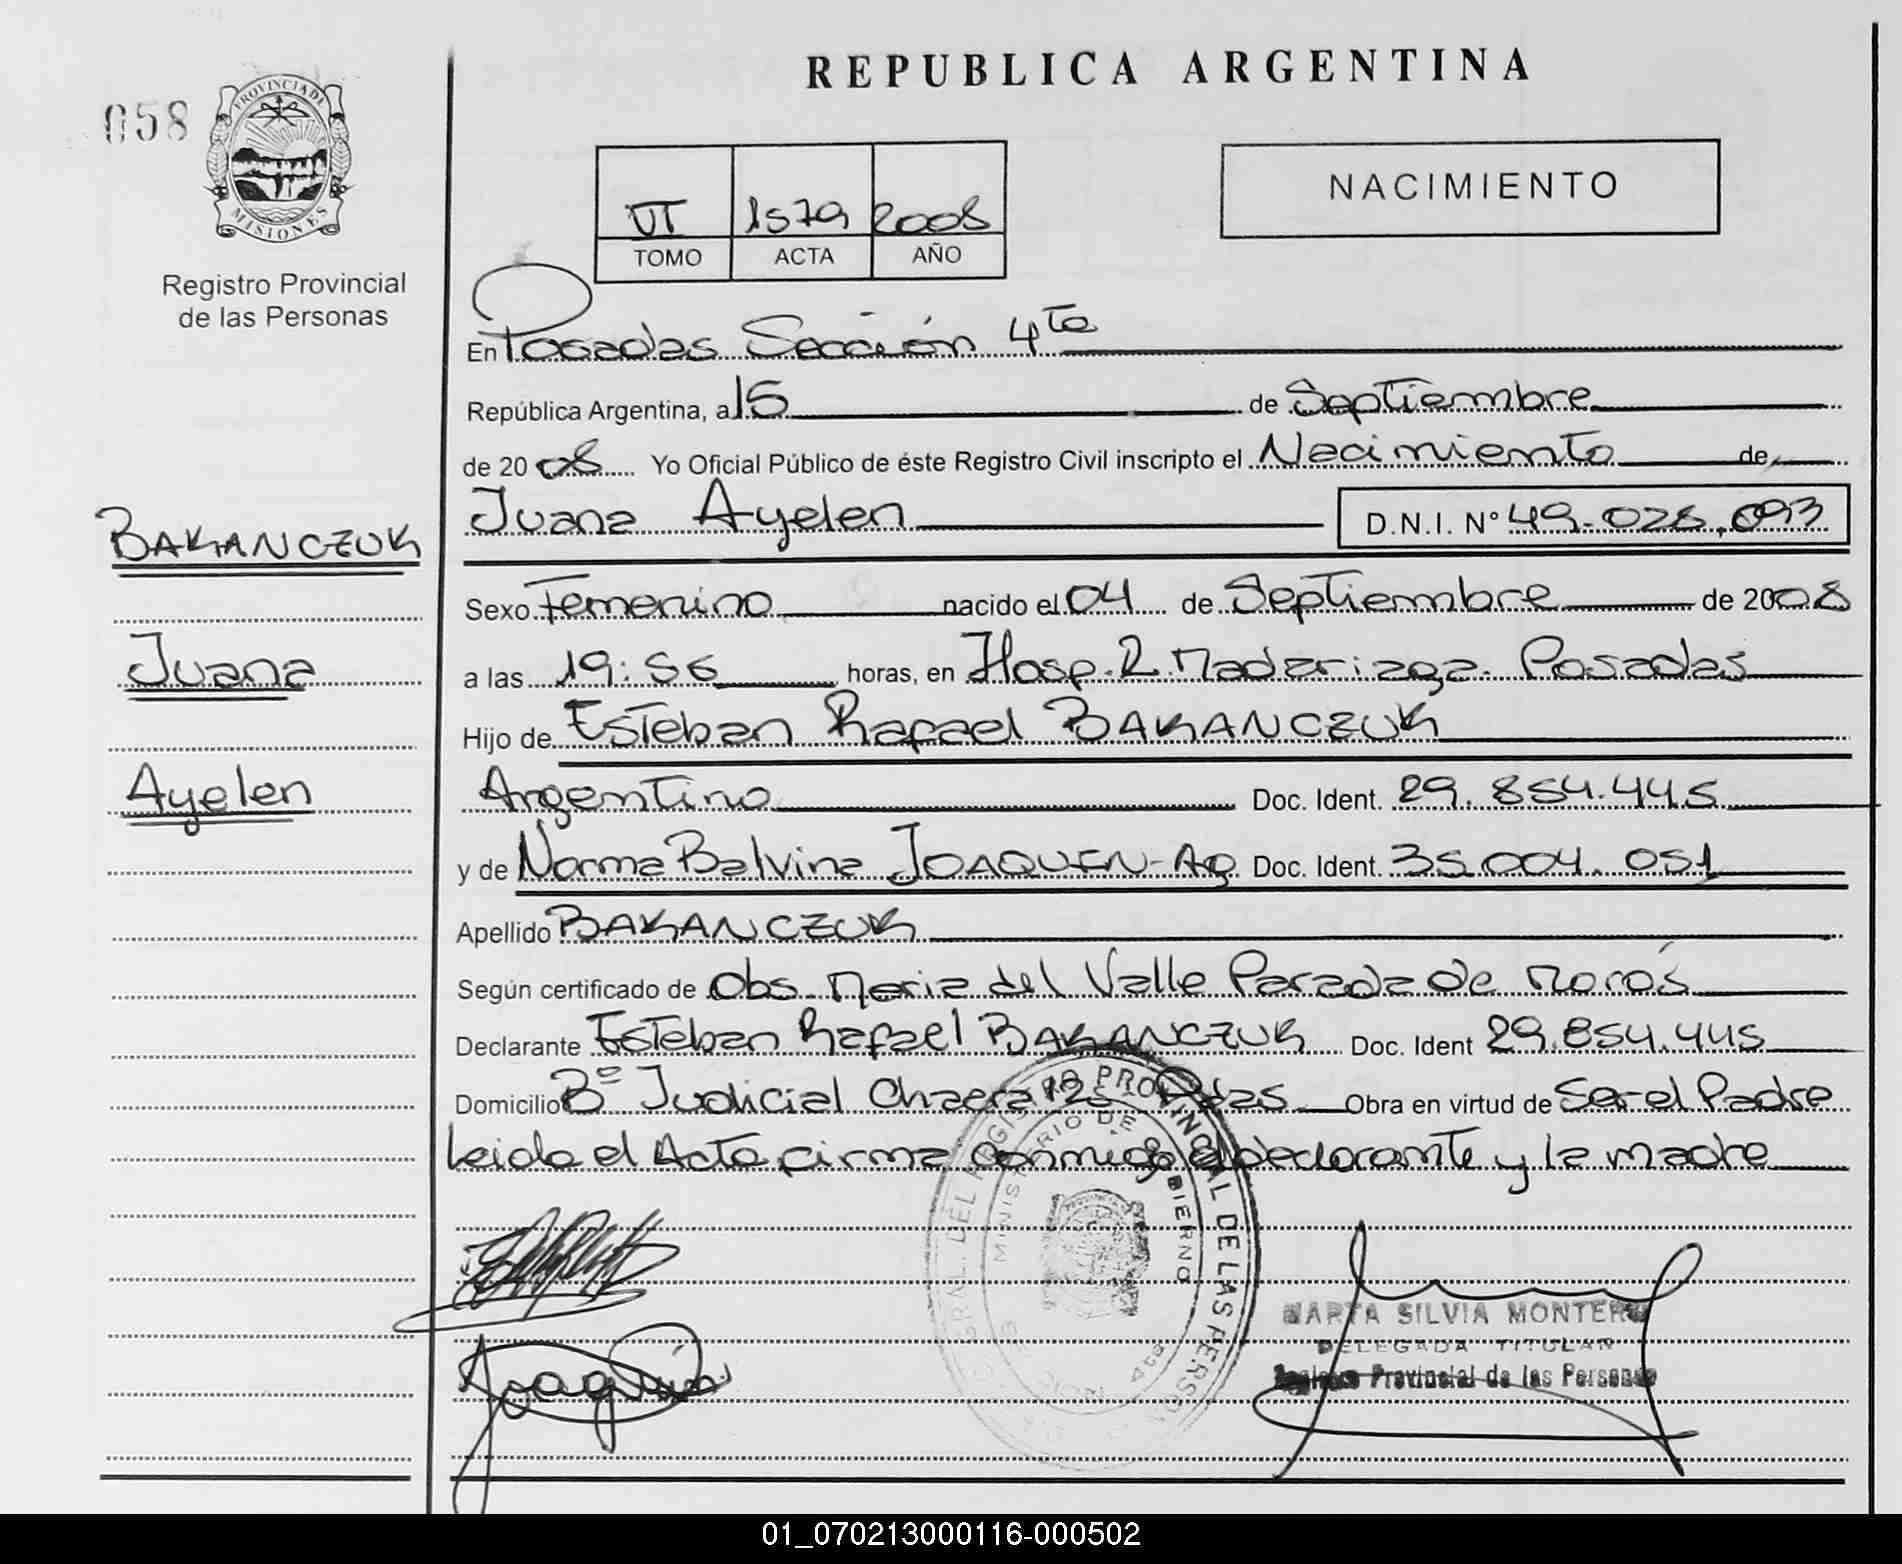 REPUBLICA ARGENTINA
058
PROVINCIA DE
MISIONES
Registro Provincial
de las Personas
VI 1579 2008
TOMO ACTA AÑO
NACIMIENTO
En Posadas Sección 4ta
República Argentina, a 15 de Septiembre
de 2008 Yo Oficial Público de éste Registro Civil inscripto el Nacimiento de
Juana Ayelen D.N.I. N° 49.028.093
BAKANCZUK
Juana
Ayelen
Sexo Femenino nacido el 04 de Septiembre de 2008
a las 19:56 horas, en Hosp. R. Madariaga. Posadas
Hijo de Esteban Rafael BAKANCZUK
Argentino Doc. Ident. 29.854.445
y de Norma Balvina JOAQUIN-Ag Doc. Ident. 35.004.051
Apellido BAKANCZUK
Según certificado de Obs. Maria del Valle Parada de Morós
Declarante Esteban Rafael BAKANCZUK Doc. Ident 29.854.445
Domicilio B° Judicial Chacra 125 Pdas Obra en virtud de Ser el Padre
Leida el Acta firma conmigo el declarante y la madre
GRAL. DEL REGISTRO PROVINCIAL DE LAS PERSONAS
MINISTERIO DE GOBIERNO
Joaquin
MARTA SILVIA MONTERO
DELEGADA TITULAR
Registro Provincial de las Personas
01_070213000116-000502